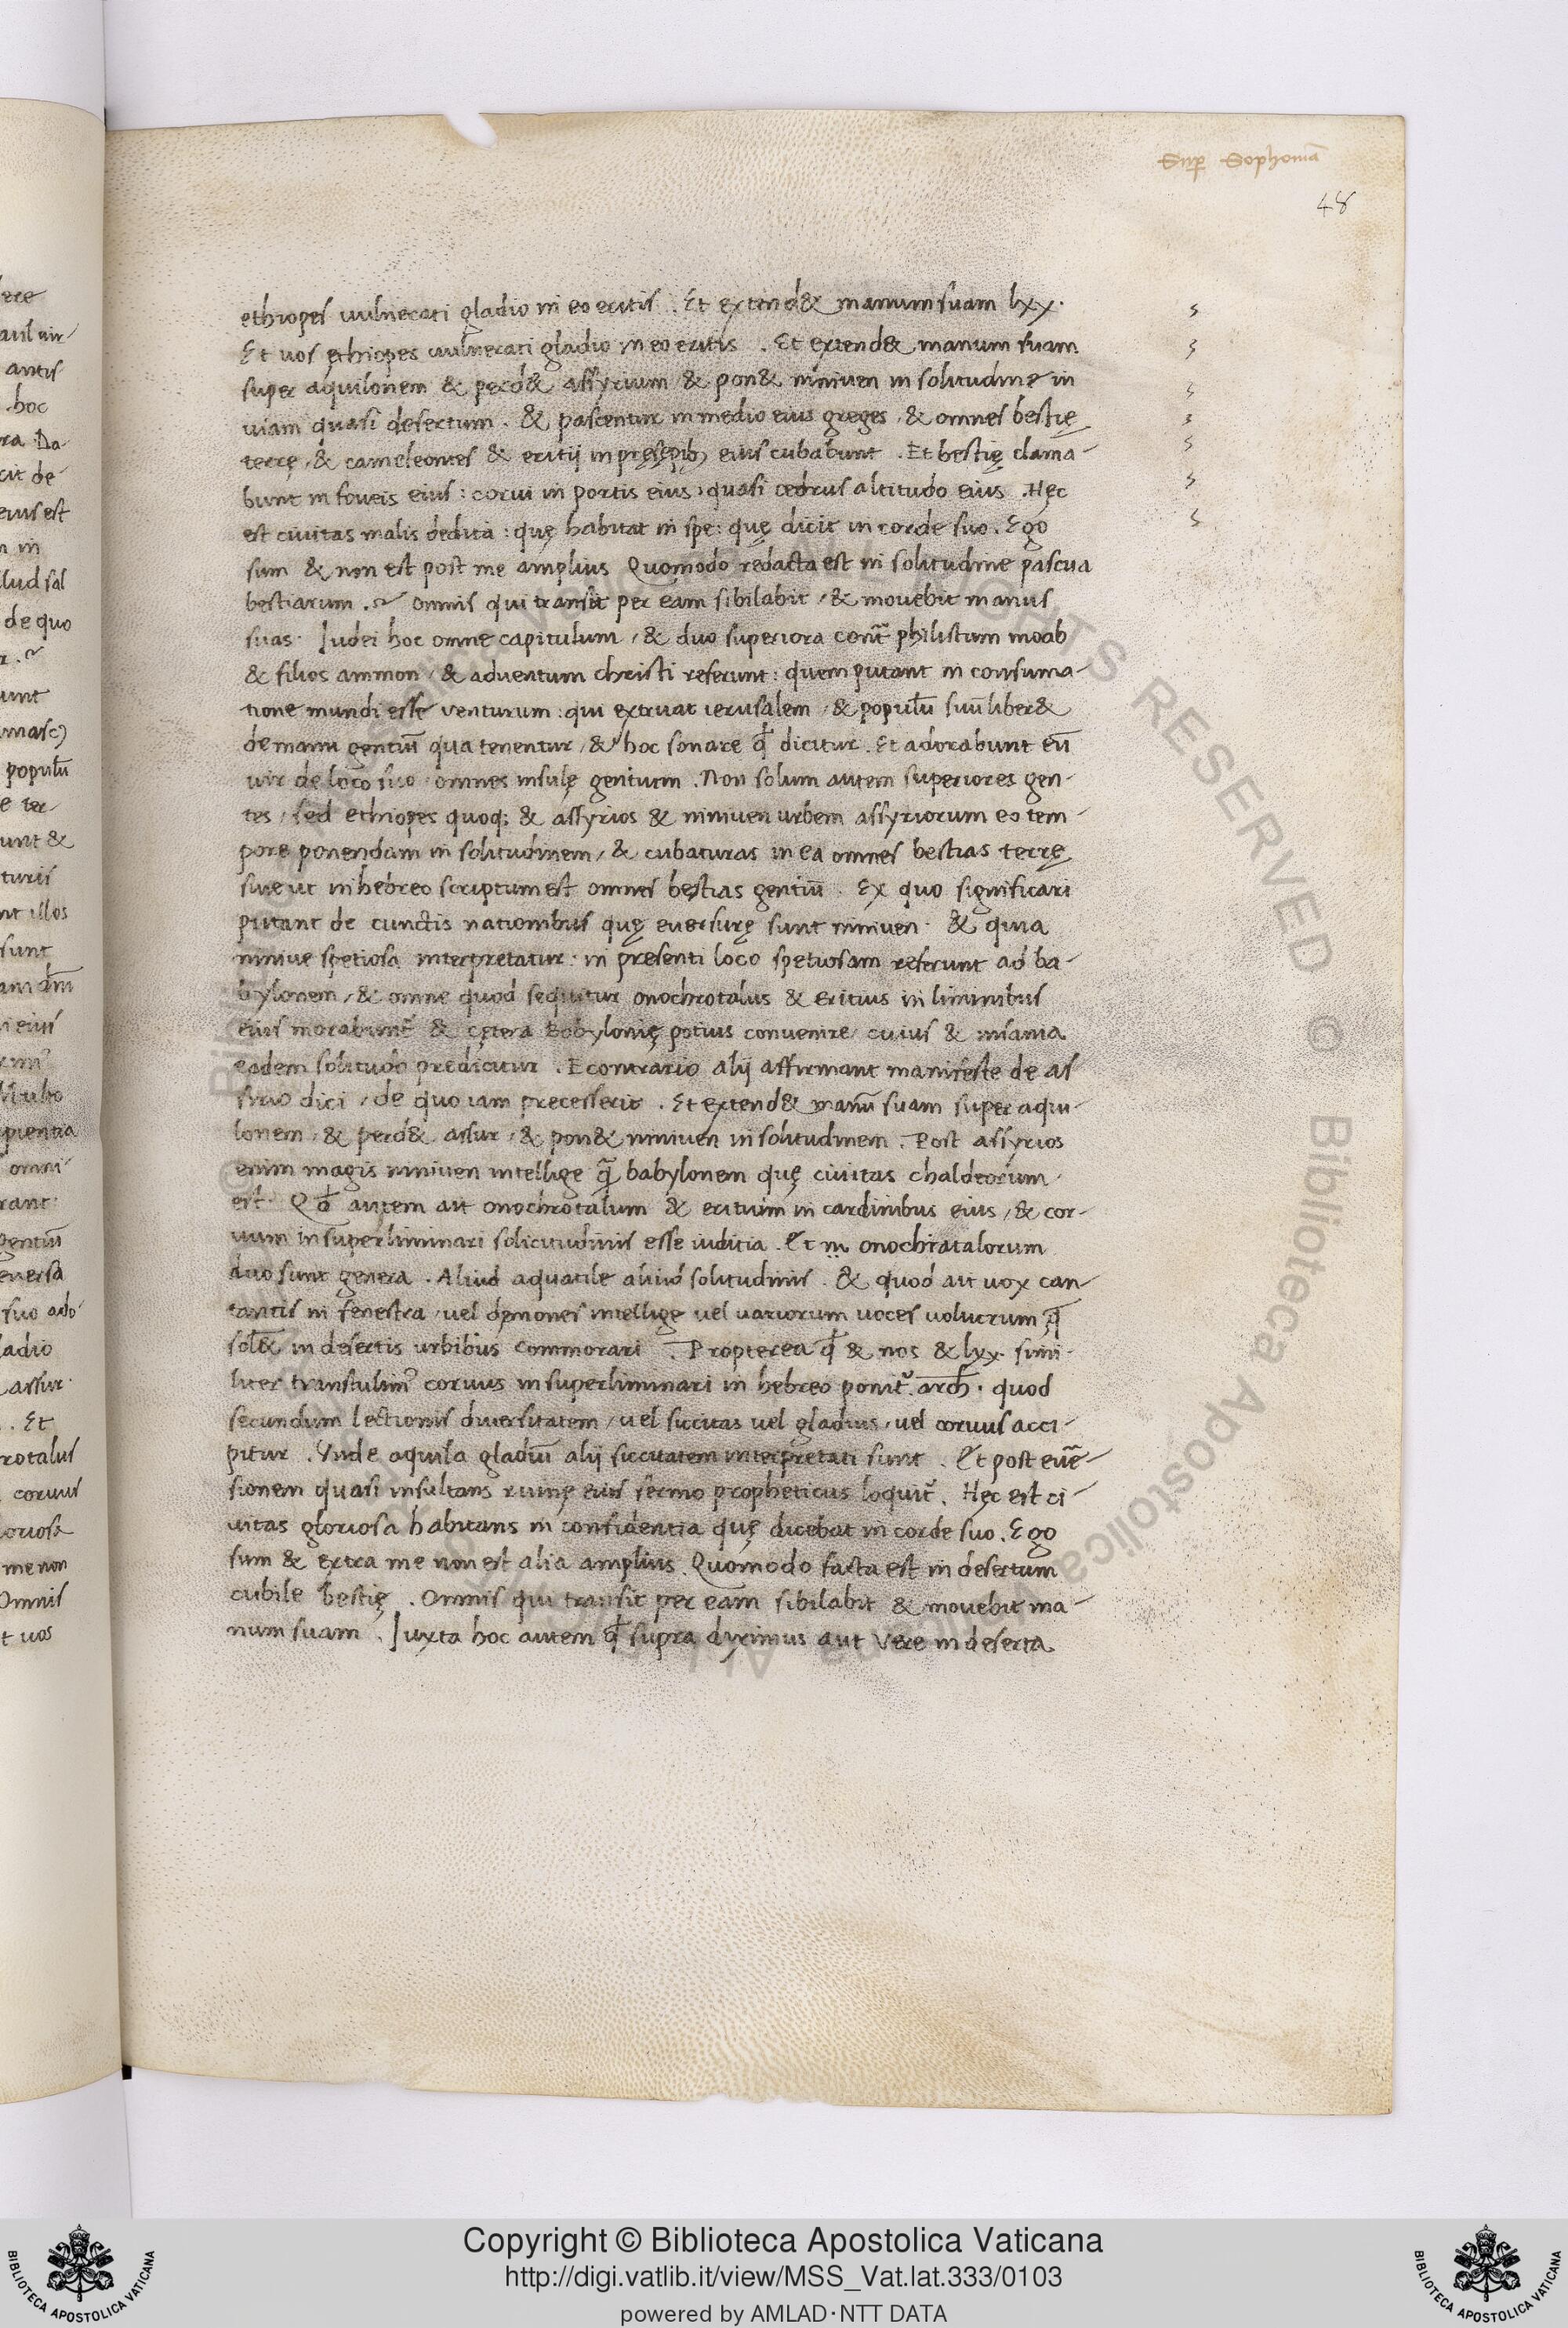 Sup Sophoniā
48
ethiopes uulnerati gladio in eo eritis . Et extend& manum suam lxx·
Et uos ethiopes uulnerati gladio in eo eritis . Et extend& manum suam
super aquilonem & perd& assyrium / & pon& niniuen in solitudine in
uiam quasi desertum . & pascentur in medio eius greges / & omnes bestię
terrę / & cameleontes & eritij in pręsępib; eius cubabunt . Et bestię clama-
bunt in foueis eius : corui in portis eius / quasi cedrus altitudo eius . Hęc
est ciuitas malis dedita : quę habitat in spe : quę dicit in corde suo . Ego
sum & non est post me amplius Quomodo redacta est in solitudine pascua
bestiarum . Omnis qui transit per eam sibilabit / & mouebit manus
suas· Iudei hoc omne capitulum / & duo superiora cont̄ philistum moab
& filios ammon / & aduentum christi referunt : quem putant in consuma-
tione mundi esse venturum : qui extruat ierusalem / & populū suū liber&
de manu gentiū qua tenentur / & hoc sonare qđ dicitur . Et adorabunt eū
uir de loco suo omnes insulę gentium . Non solum autem superiores gen-
tes / sed ethiopes quoq; & assyrios & niniuen urbem assyriorum eo tem-
pore ponendam in solitudinem / & cubaturas in ea omnes bestias terrę
siue ut in hebreo scriptum est omnes bestias gentiū . Ex quo significari
putant de cunctis nationibus quę euersurę sunt niniuen · & quia
niniue spetiosa interpretatur · in presenti loco spetiosam referunt ad ba-
bylonem / & omne quod sequitur onochrotalus & eritius in liminibus
eius morabunt̄ & cętera Babylonię potius conuenire / cuius & insania
eadem solitudo predicitur . Econtrario alij affirmant manifeste de as
sirio dici / de quo iam precesserit . Et extend& manū suam super aqui-
lonem / & perd& assur / & pon& niniuen in solitudinem . Post assyrios
enim magis niniuen intellige q̄ babylonem quę ciuitas chaldeorum
est· Qđ autem ait onochrotalum & eritium in cardinibus eius / & cor-
uum in superliminari solicitudinis esse inditia . Et in onochratalorum
duo sunt genera . Aliud aquatile aliud solitudinis . & quod ait uox can-
tantis in fenestra / uel demones intellige uel uariorum uoces uolucrum q̄
sol& in desertis urbibus commorari . Propterea qđ & nos & lxx· simi-
liter transtulim̄ coruus in superliminari in hebreo ponit̄ . arch · quod
secundum lectionis diuersitatem / uel siccitas uel gladius / uel coruus acci-
pitur . Vnde aquila gladiū alij siccitatem interpretati sunt . Et post euē-
sionem quasi insultans ruinę eius sermo propheticus loquit̄ . Hęc est ci-
uitas gloriosa habitans in confidentia quę dicebat in corde suo . Ego
sum & extra me non est alia amplius . Quomodo facta est in desertum
cubile bestię . Omnis qui transit per eam sibilabit & mouebit ma-
num suam . Iuxta hoc autem qđ supra diximus aut vere in deserta
Copyright © Biblioteca Apostolica Vaticana
http://digi.vatlib.it/view/MSS_Vat.lat.333/0103
powered by AMLAD·NTT DATA